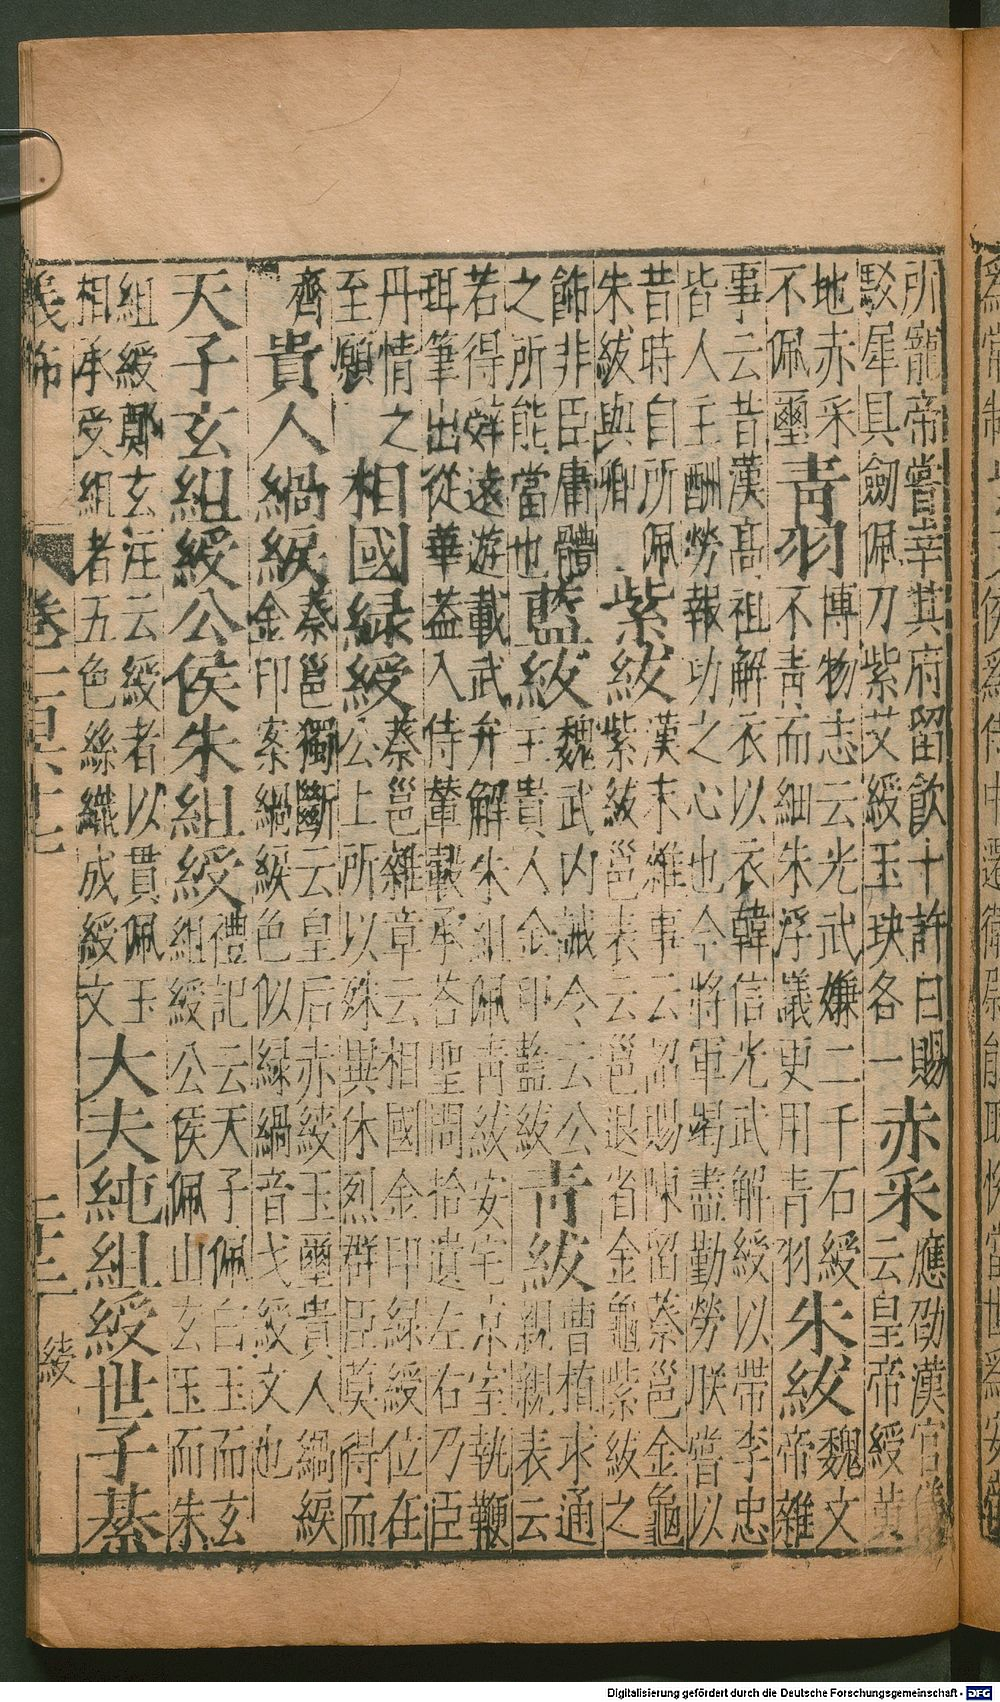 所寵帝嘗幸其府留飲十許日賜
駮犀具劒佩刀紫艾綬玉玦各一赤采應劭漢官儀
云皇帝綬黄
地赤采
不佩璽青羽博物志云光武嫌二千石綬
不青而細朱浮議更用青羽朱紱魏文
帝雜
事云昔漢高祖解衣以衣韓信光武解綬以帶李忠
皆人主酬勞報功之心也今將軍曷盡勤勞朕嘗以
昔時自所佩
朱紱與卿紫紱漢末雜事云詔賜陳留蔡邕金龜
紫紱邕表云邕退省金龜紫紱之
飾非臣庸體
之所能當也藍紱魏武内誡令云公
主貴人金印藍紱青紱曹植求通
親親表云
若得辤遠遊載武弁解朱組佩青紱安宅京室執鞭
珥筆出從華葢入侍輦轂承荅聖問拾遺左右乃臣
丹情之
至願相國緑綬蔡邕雜章云相國金印緑綬位在
公上所以殊異休烈群臣莫得而
齊貴人緺綟蔡邕獨斷云皇后赤綬玉璽貴人緺綟
金印案緺綟色似緑緺音戈綬文也
天子玄組綬公侯朱組綬禮記云天子佩白玉而玄
組綬公侯佩山玄玉而朱
組綬鄭玄注云綬者以貫佩玉
相承受組者五色絲織成綬文大夫純組綬世子綦
卷
綾
Digitalisierung gefördert durch die Deutsche Forschungsgemeinschaft - DFG